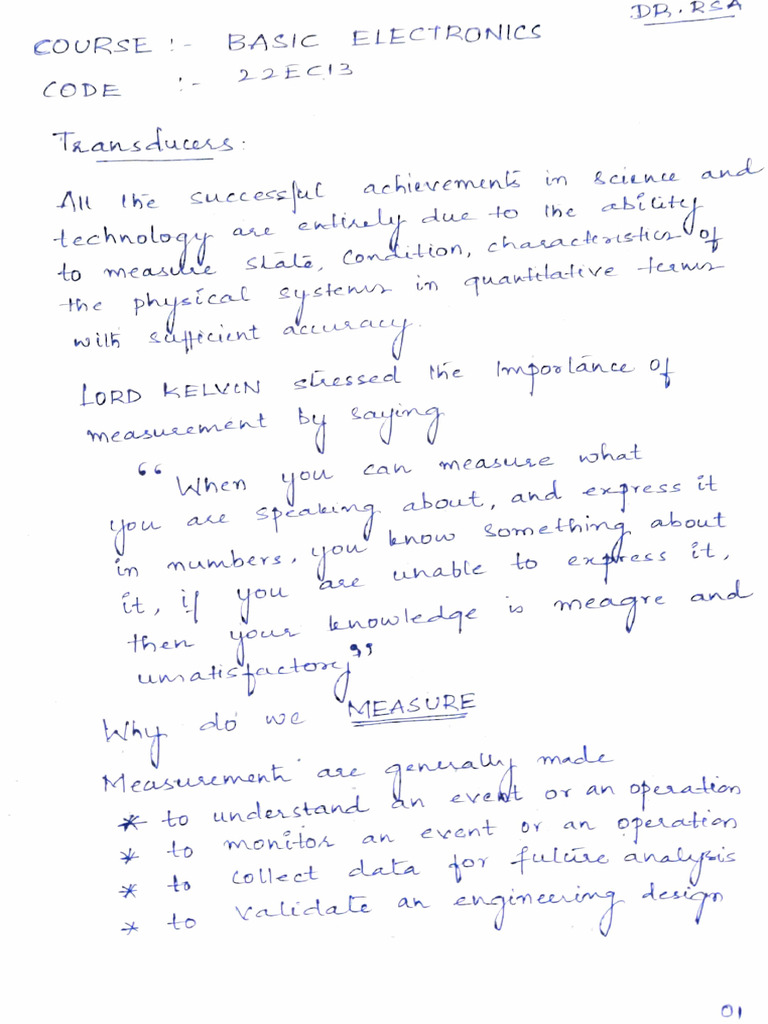 DR. RSA
COURSE :- BASIC ELECTRONICS
CODE :- 22EC13
Transducers:
All the successful achievements in science and
technology are entirely due to the ability
to measure state, condition, characteristics of
the physical systems in quantitative terms
with sufficient accuracy.
LORD KELVIN stressed the Importance of
measurement by saying
“ When you can measure what
you are speaking about, and express it
in numbers, you know something about
it, if you are unable to express it,
then your knowledge is meagre and
unsatisfactory”
Why do we MEASURE
Measurement are generally made
* to understand an event or an operation
* to monitor an event or an operation
* to collect data for future analysis
* to validate an engineering design
01